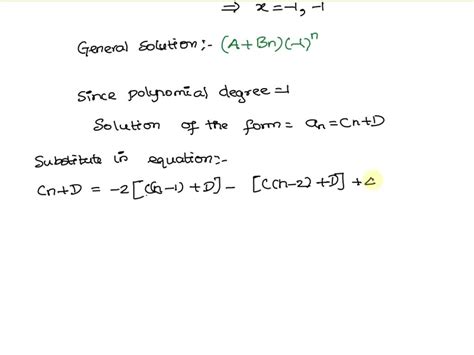 ⇒ x = -1, -1
General Solution:- (A+Bn)(-1)^n
Since polynomial degree=1
Solution of the form = a_n = Cn+D
Substitute in equation:-
Cn+D = -2[C(n-1)+D] - [C(n-2)+D] +